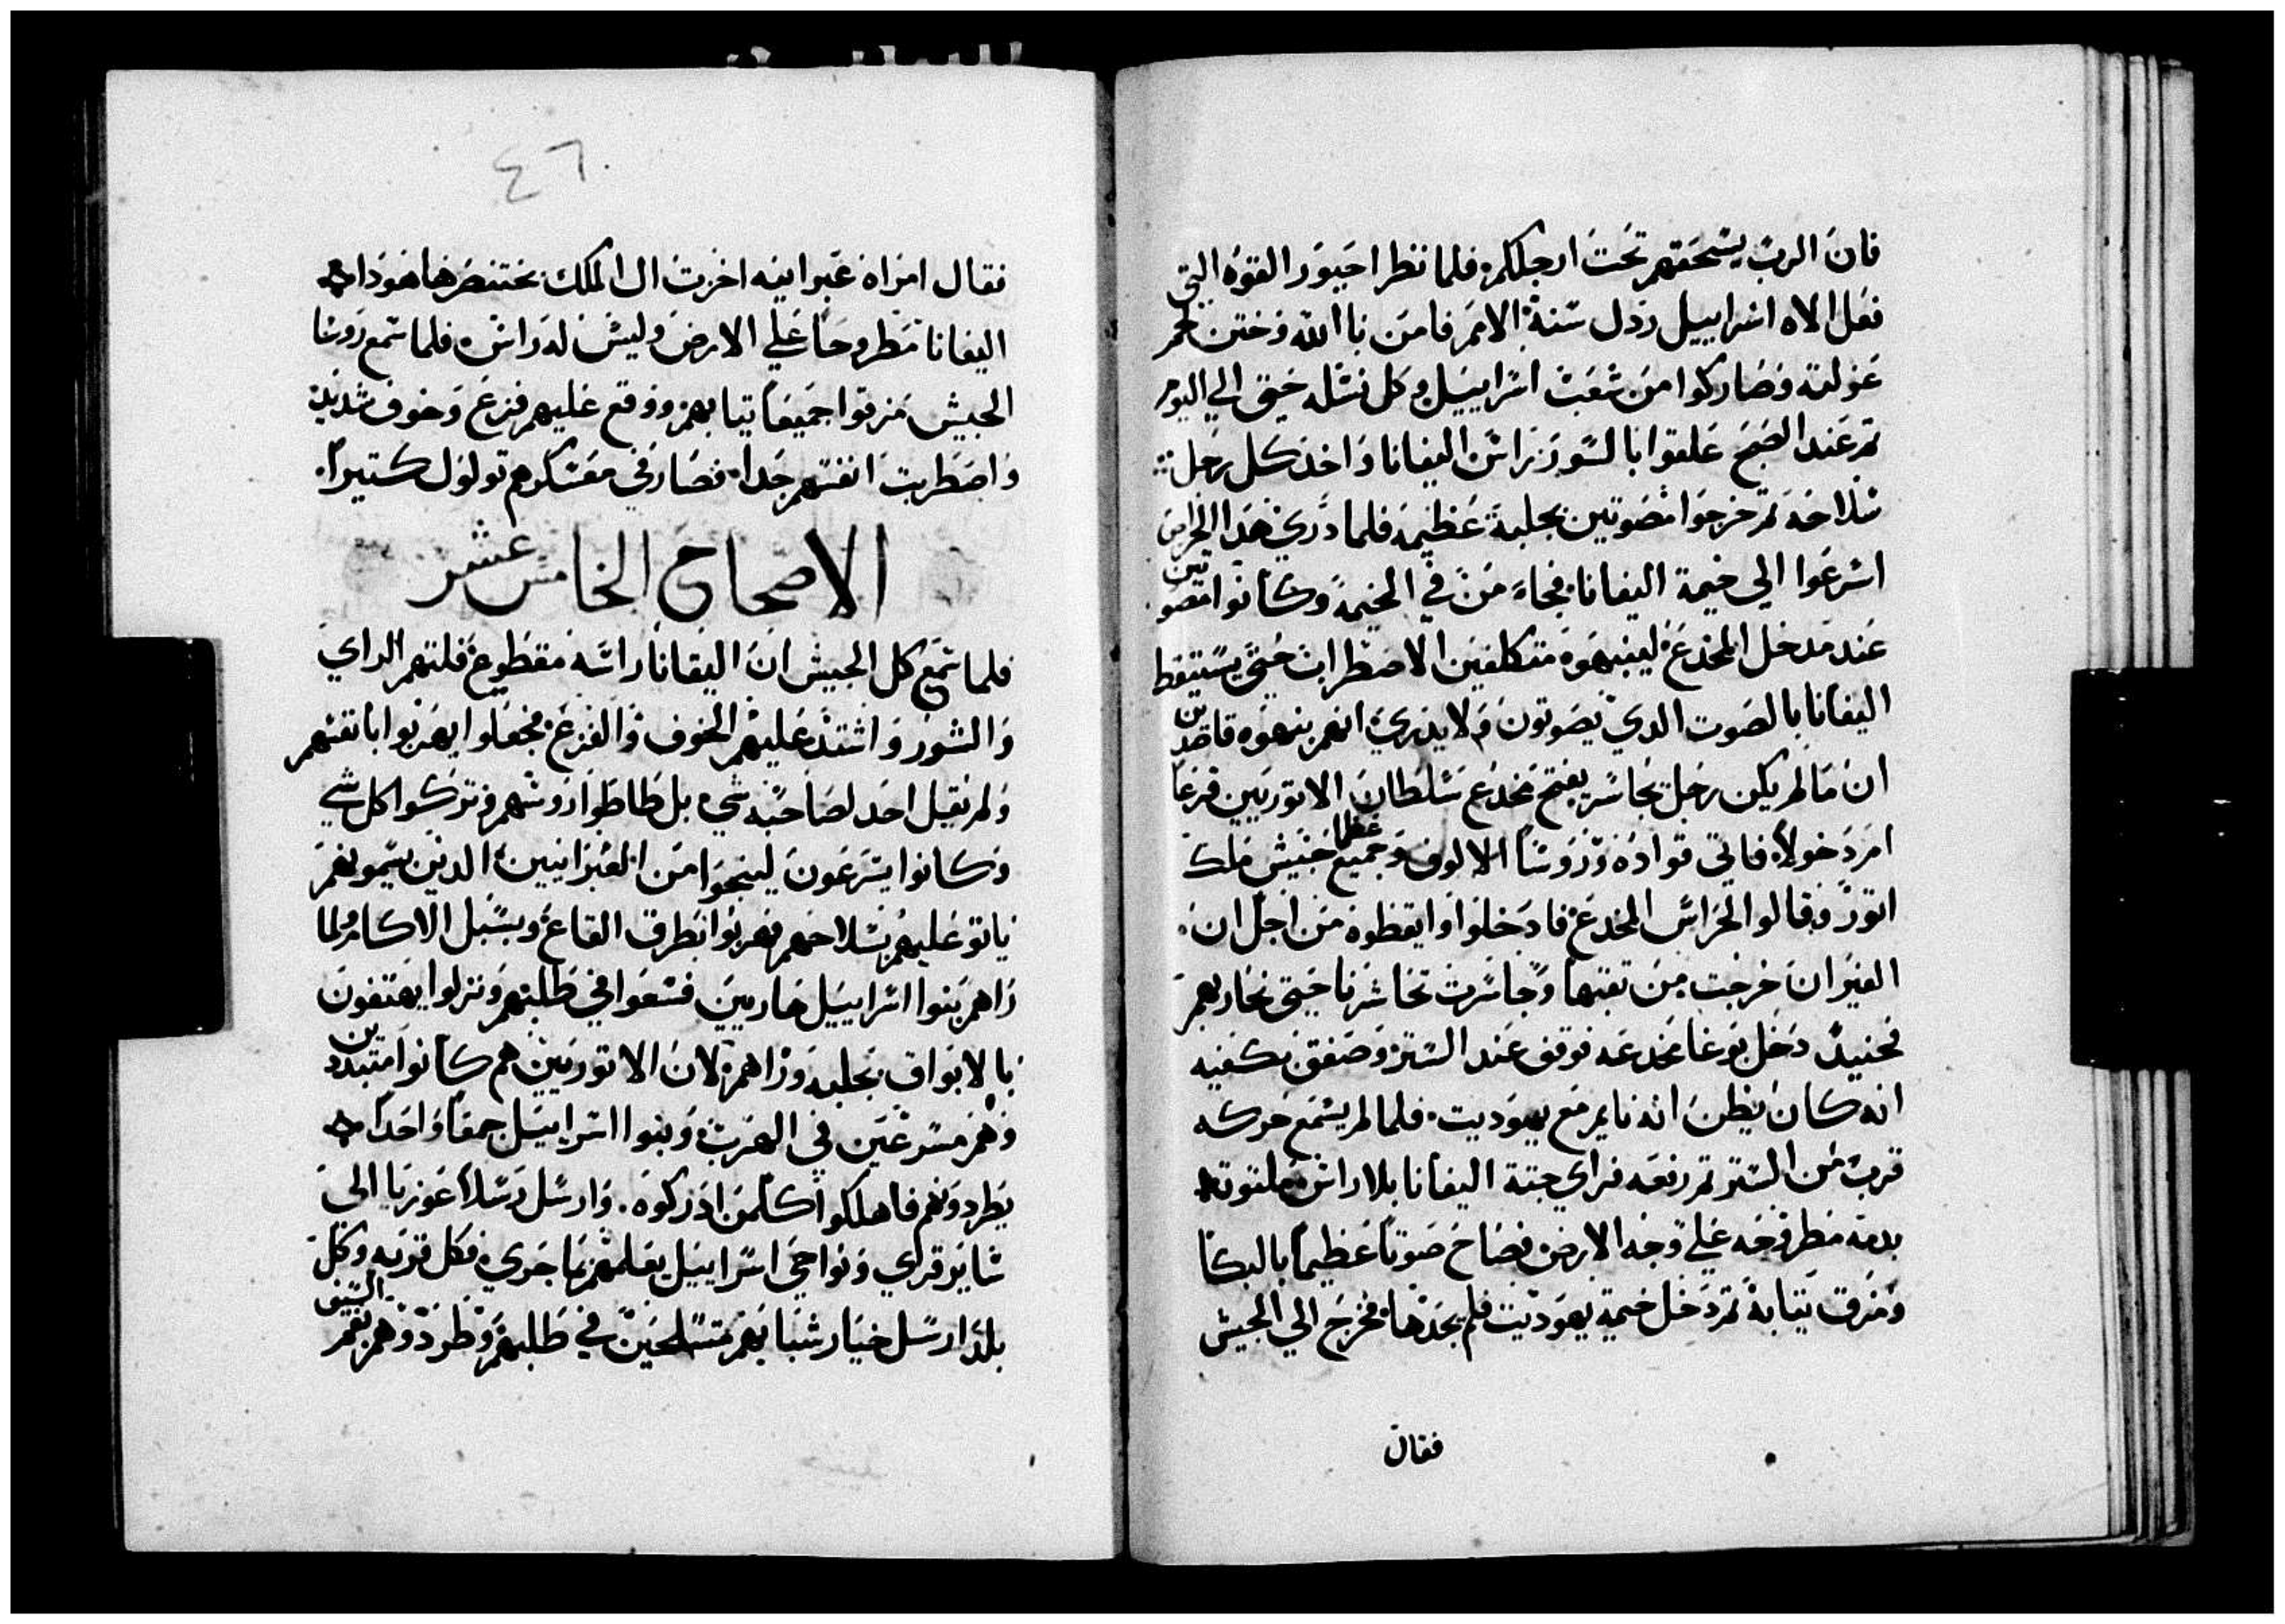 فان الرب يسحقهم تحت ارجلكم فلما نظر احيور القوه التي
فعل الاه اسراييل رذل سنة الامم فامن باالله وختن لحم
غرلته وصار كوا من شعب اسراييل وكل نسله حتي الي اليوم
تم عند الصبح علقوا بالسور راس اليفانا واخد كل رجل
سلاحه تم خرجوا مصوتين بجلبة عظيمه فلما دري هدا الحراس
اسرعوا الي خيمة اليفانا فجاء من في الخيمة وكانوا مصوتين
عند مدخل المخدع لينبهوه متكلفين الاضطراب حتي يستيقظ
اليفانا بالصوت الدي يصوتون ولا يدري انهم بنهوه قاصدين
ان ما لم يكن رجل تجاسر يفتح مخدع سلطان الاتوريين قرعا
ام دخولا فاتي قواده وروسا الالوف وجميع عظما جيش ملك
اتور وقالوا لحراس المخدع فادخلوا وايقظوه من اجل ان
الفيران خرجت من تقبها وجاسرت تحاشرنا حتي نحاربهم
فحنيد دخل بوغا مخدعه فوقف عند الستر وصفق بكفيه
انه كان يظن انه نايم مع يهوديت فلما لم يسمع حركه
قرب من الستر تم رفعه فراي جتة اليفانا بلا راس ملتوته
بدمه مطروحه علي وجه الارض فصاح صوتا عظيما بالبكا
ومزق تيابه تم دخل خيمة يهوديت فلم يجدها فخرج الي الجيش
فقال
٤٦
فقال امراه عبرانيه اخزت ال الملك بختنصر ها هودا
اليفانا مطروحا علي الارض وليس له راس فلما سمع روسا
الجيش مزقوا جميعا تيابهم ووقع عليهم فزع وخوف شديد
واضطربت انفسهم جدا فصار في معسكرهم تولول كتيرا
الاصحاح الخامس عشر
فلما سمع كل الجيش ان اليفانا راسه مقطوع فلتهم الراي
والشور واشتد عليهم الخوف والفزع فجعلوا يهربوا بانفسهم
ولم يقيل احد لصاحبه شي بل طاطوا روسهم وتركوا كل شي
وكانوا يسرعون لينجوا من العبرانيين الدين يسمونهم
ياتو عليهم بسلاحهم فهربوا بطرق القاع وبسبل الاكام ولما
راهم بنوا اسراييل هاربين فسعوا في طلبهم ونزلوا يهتفون
بالابواق بجلبه وراهم لان الاتوريين هم كانوا متبددين
وهم مسرعين في الهرب وبنوا اسراييل جمعا واحدا
يطردونهم فاهلكوا كلمن ادركوه وارسل رسلا عوزيا الي
ساير قراي ونواحي اسراييل يعلمهم بما جري فكل قريه وكل
بلد ارسل خيار شبابهم متسلحين في طلبهم وطردوهم بفم السيف